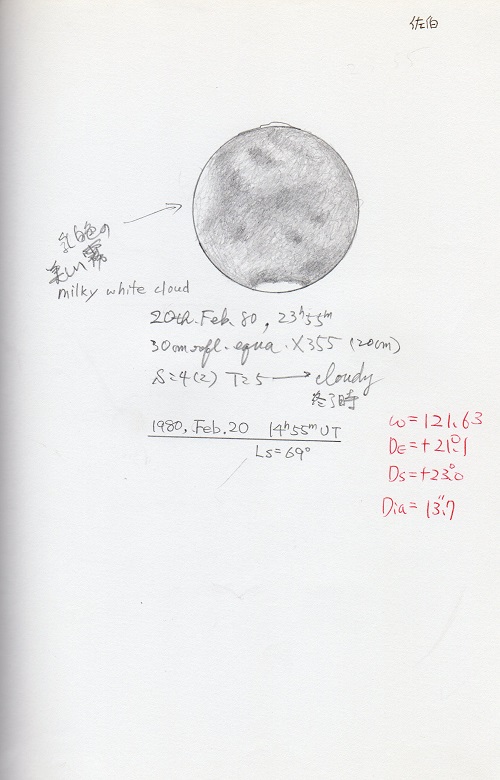 佐伯
乳白色の
milky white cloud
20th. Feb. 80, 23ʰ55ᵐ
30cm refl. equa. ×355 (20cm)
S=4(2) T=5 → cloudy
終了時
1980, Feb. 20 14ʰ55ᵐ UT
Ls=69°
ω=121.63
DE=+21.°1
DS=+23.°0
Dia=13."7